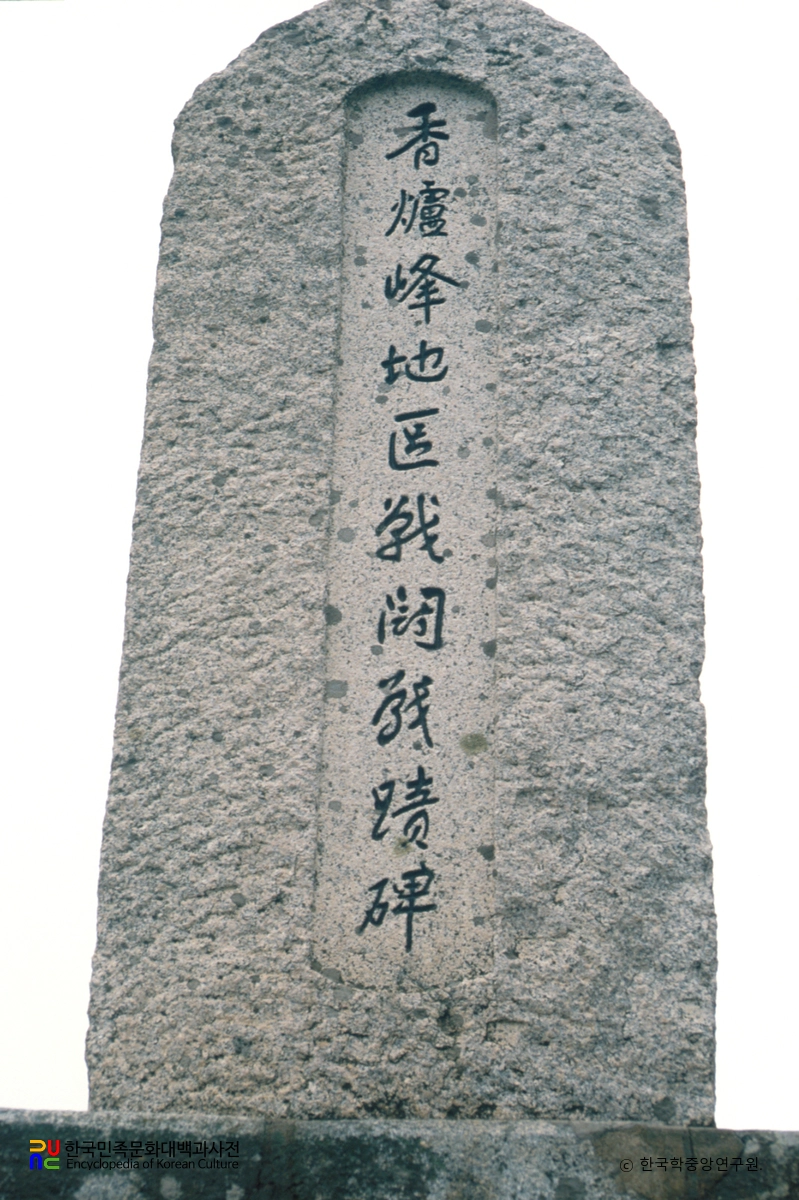 香爐峰地區戰鬪戰蹟碑
한국민족문화대백과사전
Encyclopedia of Korean Culture
© 한국학중앙연구원.